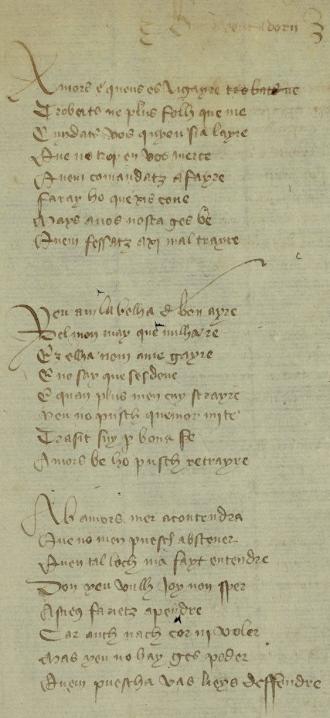 Amors e queus es vigayre
Trobetz ne plus folh que me
Cuydatz vos quyeu sia layre
Que no trop en vos merce
Quem comandatz a fayre
Faray ho que xis cove
Mays a vos nosta ges be
Quem fessatz axi mal trayre
Yeu am la belha d bon ayre
Del mon may que nulha re
Et elha nom ama gayre
E no say que ses deve
E quan plus men cuy strayre
Yeu no pusch quemor mi te
Trasit suy p bona fe
Amors be ho pusch retrayre
Ab amors mer a contendra
Que no men puesch abstener
Quen tal loch ma fayt entendre
Don yeu nulh joy non sper
farietz a pendre
Car anch nach cor ni voler
Mas yeu no hay ges poder
Quem puescha vas lieys deffendre